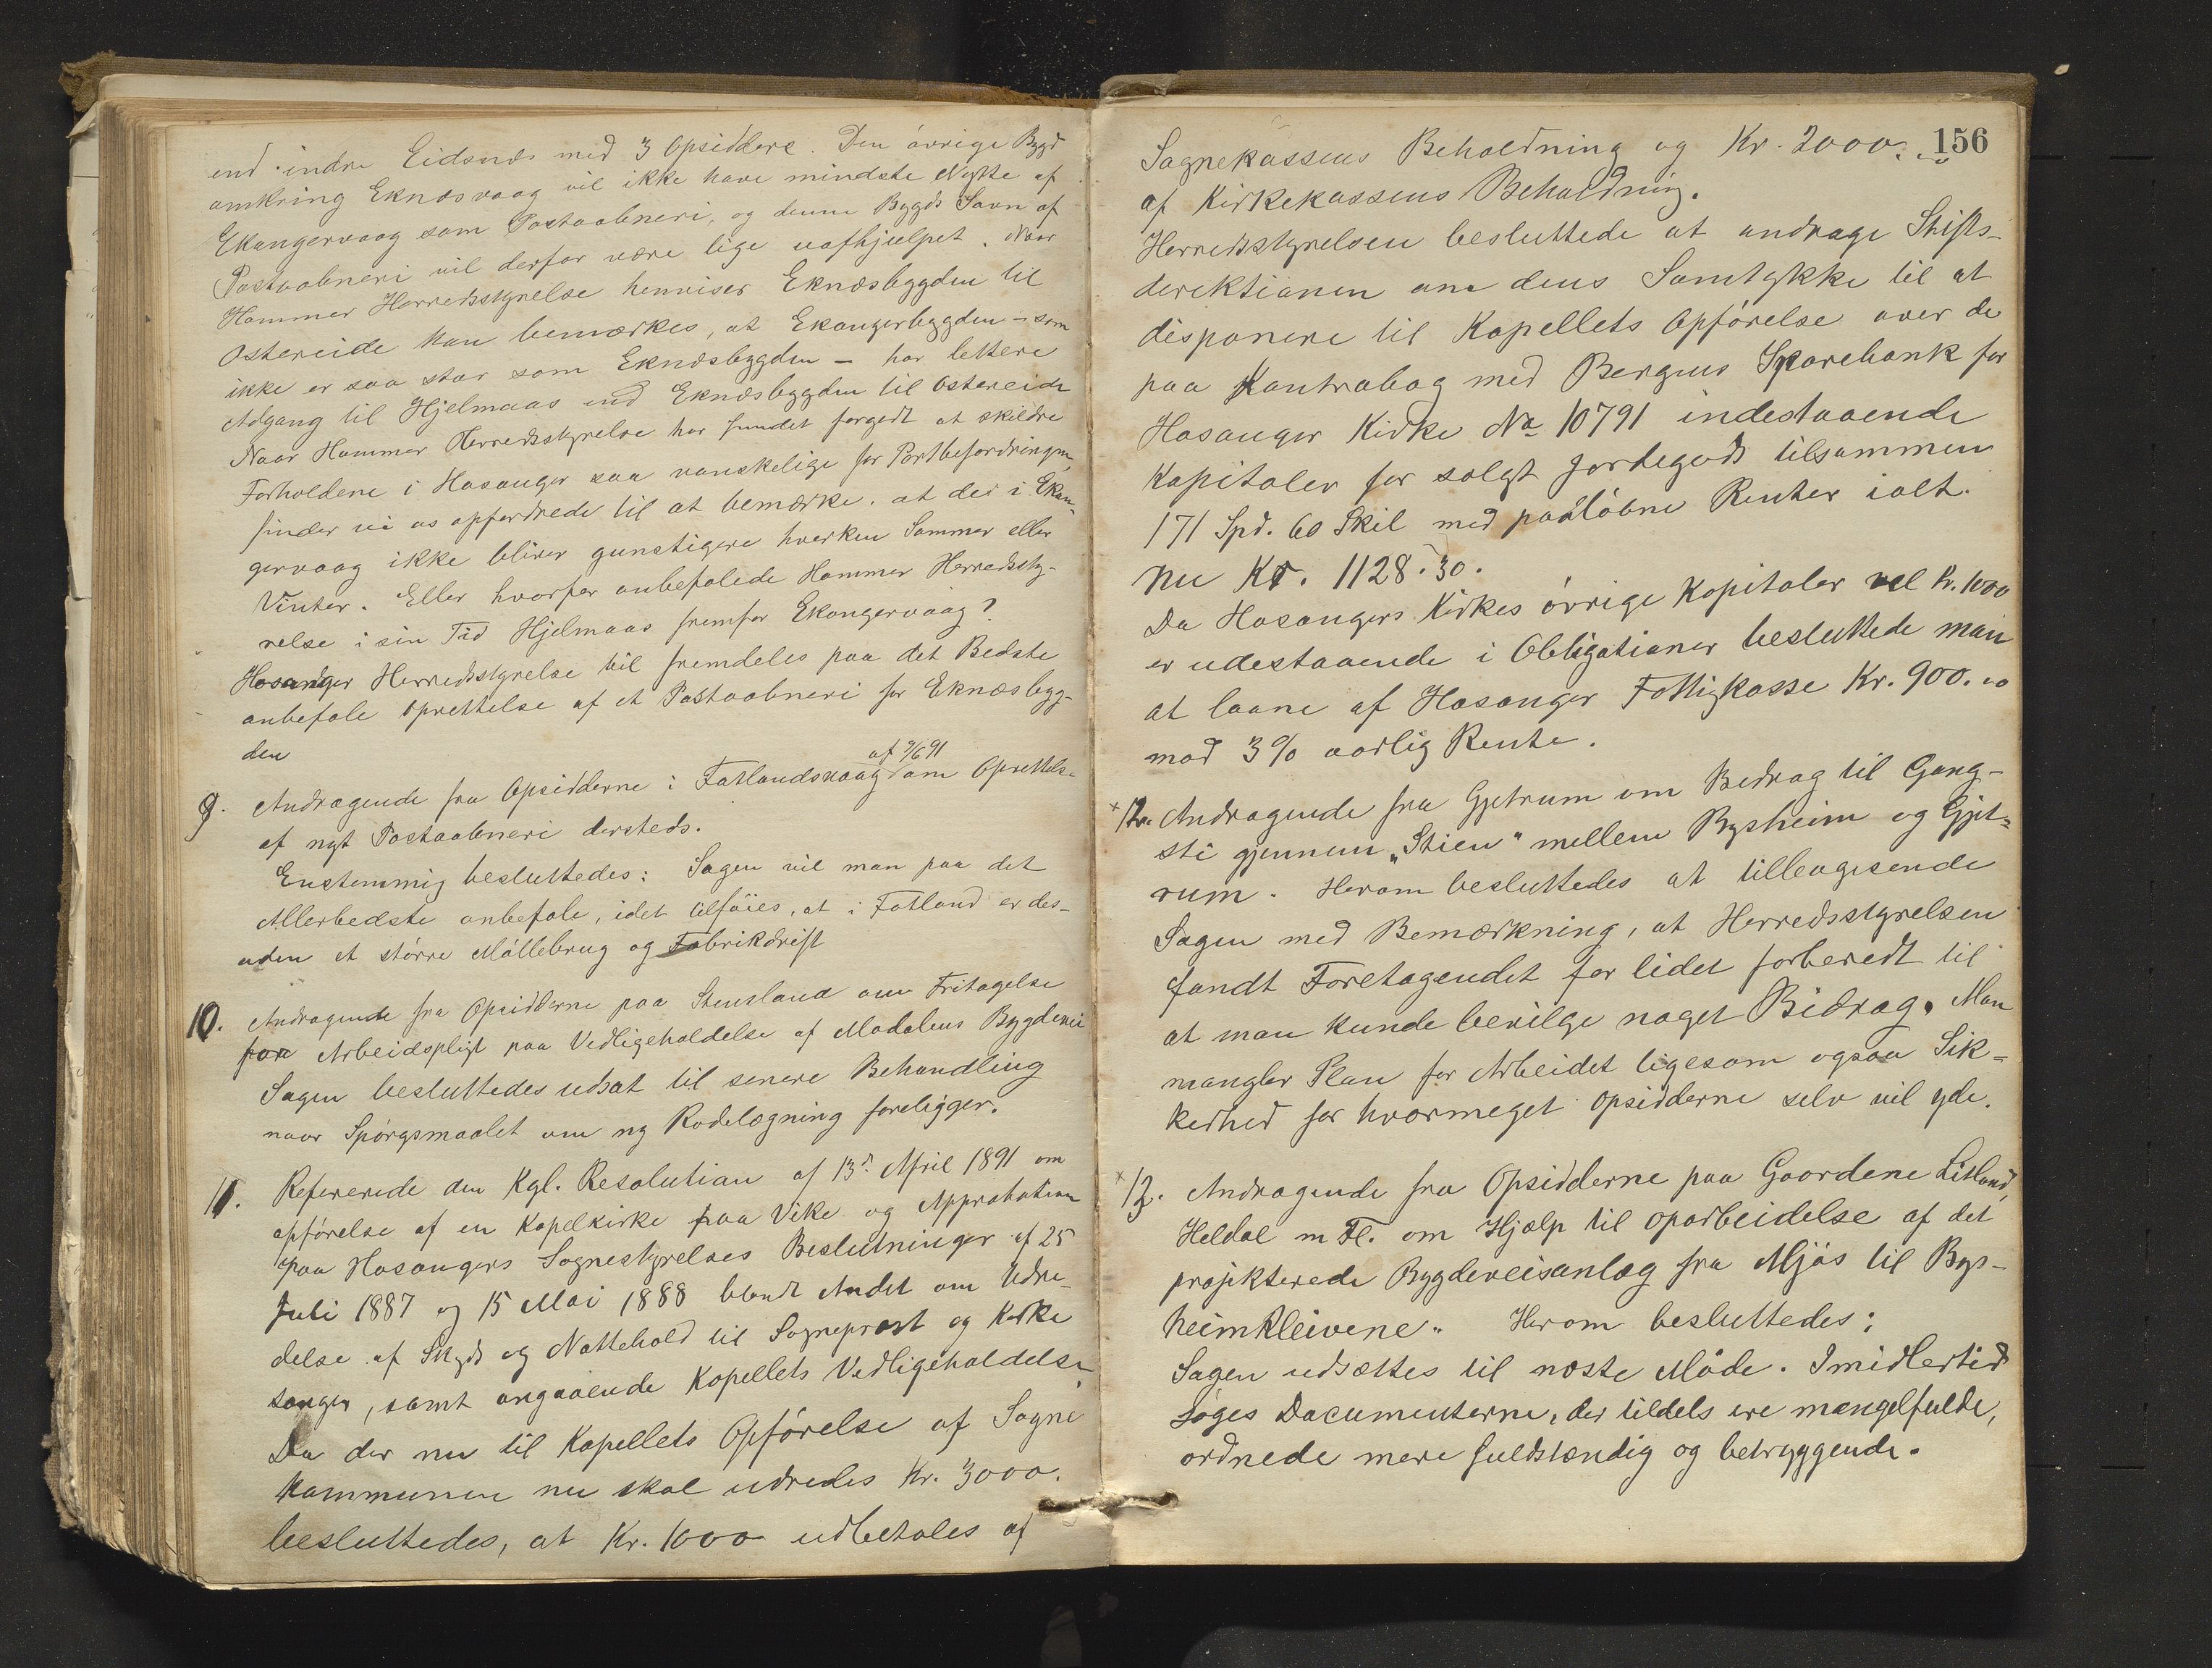 end indre Eidsnæs med 3 Opsiddere. Den øvrige Bygd
omkring Eknæsvaag vil ikke have mindste Nytte af
Ekangervaag som Postaabneri, og denne Bygds Savn af
Postaabneri vil derfor være lige uafhjulpet. Naar
Hammer Herredsstyrelse henviser Eknæsbygden til
Ostereide kan bemærkes, at Ekangerbygden – som
ikke er saa stor som Eknæsbygden – har lettere
Adgang til Hjelmaas end Eknæsbygden til Ostereide
Naar Hammer Herredsstyrelse har fundet forgodt at skildre
Forholdene i Hosanger saa vanskelige for Postbefordringen,
finder vi os opfordrede til at bemærke, at det i Ekan-
gervaag ikke bliver gunstigere hverken Sommer eller
Vinter. Eller hvorfor anbefalede Hammer Herredssty-
relse i sin Tid Hjelmaas fremfor Ekangervaag?
Hosanger Herredsstyrelse vil fremdeles paa det Bedste
anbefale Oprettelse af et Postaabneri for Eknæsbyg-
den
af 9/6 91
9. Andragende fra Opsidderne i Fatlandsvaag om Oprettelse
af nyt Postaabneri dersteds.
Enstemmig besluttedes: Sagen vil man paa det
Allerbedste anbefale, idet tilføies, at i Fotland er des-
uden et større Møllebrug og Fabrikdrift
10. Andragende fra Opsidderne paa Stensland om Fritagelse
fra Arbeidspligt paa Vedligeholdelse af Modalens Bygdevei
Sagen besluttedes udsat til senere Behandling
naar Spørgsmaalet om ny Rodelægning foreligger.
11. Refererede den Kgl. Resolution af 13de April 1891 om
opførelse af en Kapelkirke paa Vike og Approbation
paa Hosangers Sognestyrelses Beslutninger af 25
Juli 1887 og 15 Mai 1888 blandt Andet om Udre-
delse af Skyds og Nattehold til Sogneprest og Kirke
sanger, samt angaaende Kapellets Vedligeholdelse.
Da der nu til Kapellets Opførelse af Sogne
kommunen nu skal udredes Kr. 3000.
besluttedes, at Kr. 1000 udbetales af
156
Sognekassens Beholdning og Kr. 2000.
af Kirkekassens Beholdning.
Herredsstyrelsen besluttede at andrage Stifts-
direktionen om dens Samtykke til at
disponere til Kapellets Opførelse over de
paa Kontrabog med Bergens Sparebank for
Hosanger Kirke No 10791 indestaaende
Kapitaler for solgt Jordegods tilsammen
171 Spd. 60 Skil med paaløbne Renter ialt.
nu Kr. 1128.30.
Da Hosangers Kirkes øvrige Kapitaler vel Kr. 1000
er udestaaende i Obligationer besluttede man
at laane af Hosanger Fattigkasse Kr. 900.00
mod 3% aarlig Rente.
× 12. Andragende fra Gjetrum om Bedrag til Gang-
sti gjennem „Stien" mellem Bysheim og Gjet-
rum. Herom besluttedes at tilbagesende
Sagen med Bemærkning, at Herredsstyrelsen
fandt Foretagendet for lidet forberedt til
at man kunde bevilge noget Bidrag. Man
mangler Plan for Arbeidet ligesom ogsaa Sik-
kerhed for hvormeget Opsidderne selv vil yde.
× 13. Andragende fra Opsidderne paa Gaardene Litland,
Heldal m Fl. om Hjælp til oparbeidelse af det
projekterede Bygdeveisanlæg fra Mjøs til Bys-
heimkleivene. Herom besluttedes:
Sagen udsættes til næste Møde. Imidlertid
søges Documenterne, der tildels ere mangelfulde,
ordnede mere fuldstændig og betryggende.